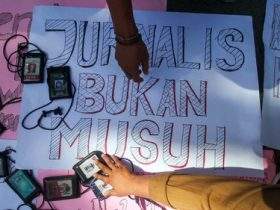 JURNALIS
BUKAN
MUSUH